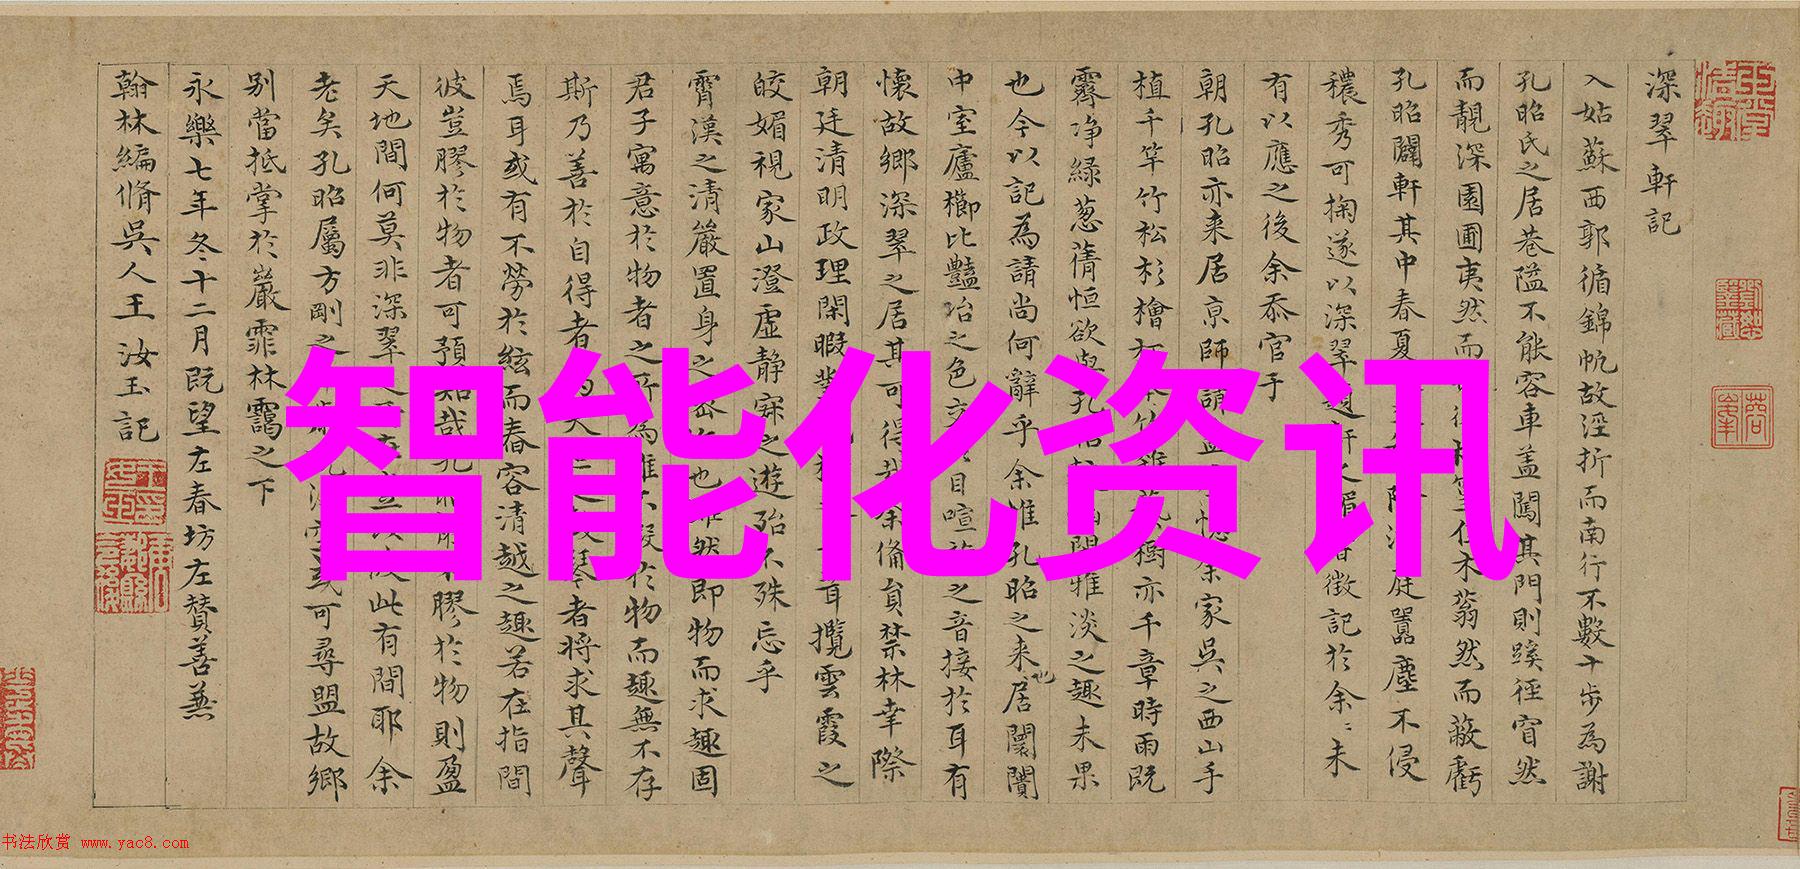 深翠軒記
入姑蘇西郭循錦帆故涇折而南行不數十步為謝
孔昭氏之居巷隘不能容車蓋闖其門則蹊徑窅然
而靚深園圃夷然而
木蓊然而蔽虧
孔昭闢軒其中春夏
庭囂塵不侵
穠秀可掬遂以深翠
徵記於余余未
有以應之後余忝官于
朝孔昭亦来居京師
余家吳之西山手
植千竿竹松杉檜
樹亦千章時雨既
霽净緑葱蒨恒欲與孔
閒雅淡之趣未果
也今以記為請尚何辭乎余惟孔昭之来居也闤闠
中室廬櫛比豔冶之色
目喧
之音接於耳有
懷故鄉深翠之居其可得
余備員禁林幸際
朝廷清明政理閑暇
攬雲霞之
皎媚視家山澄虛静寐之遊殆不殊忘乎
霄漢之清嚴置身之
也雖然即物而求趣固
君子寓意於物者之所
於物而趣無不存
斯乃善於自得者
琴者将求其聲
焉耳或有不勞於絃而舂容清越之趣若在指間
彼豈膠於物者可預知哉孔
膠於物則盈
天地間何莫非深翠
此有間耶余
老矣孔昭屬方剛之
或可尋盟故鄉
别當抵掌於巖霏林靄之下
永樂七年冬十二月既望左春坊左贊善兼
翰林編脩吳人王汝玉記
智能化资讯
书法欣赏 www.yac8.com